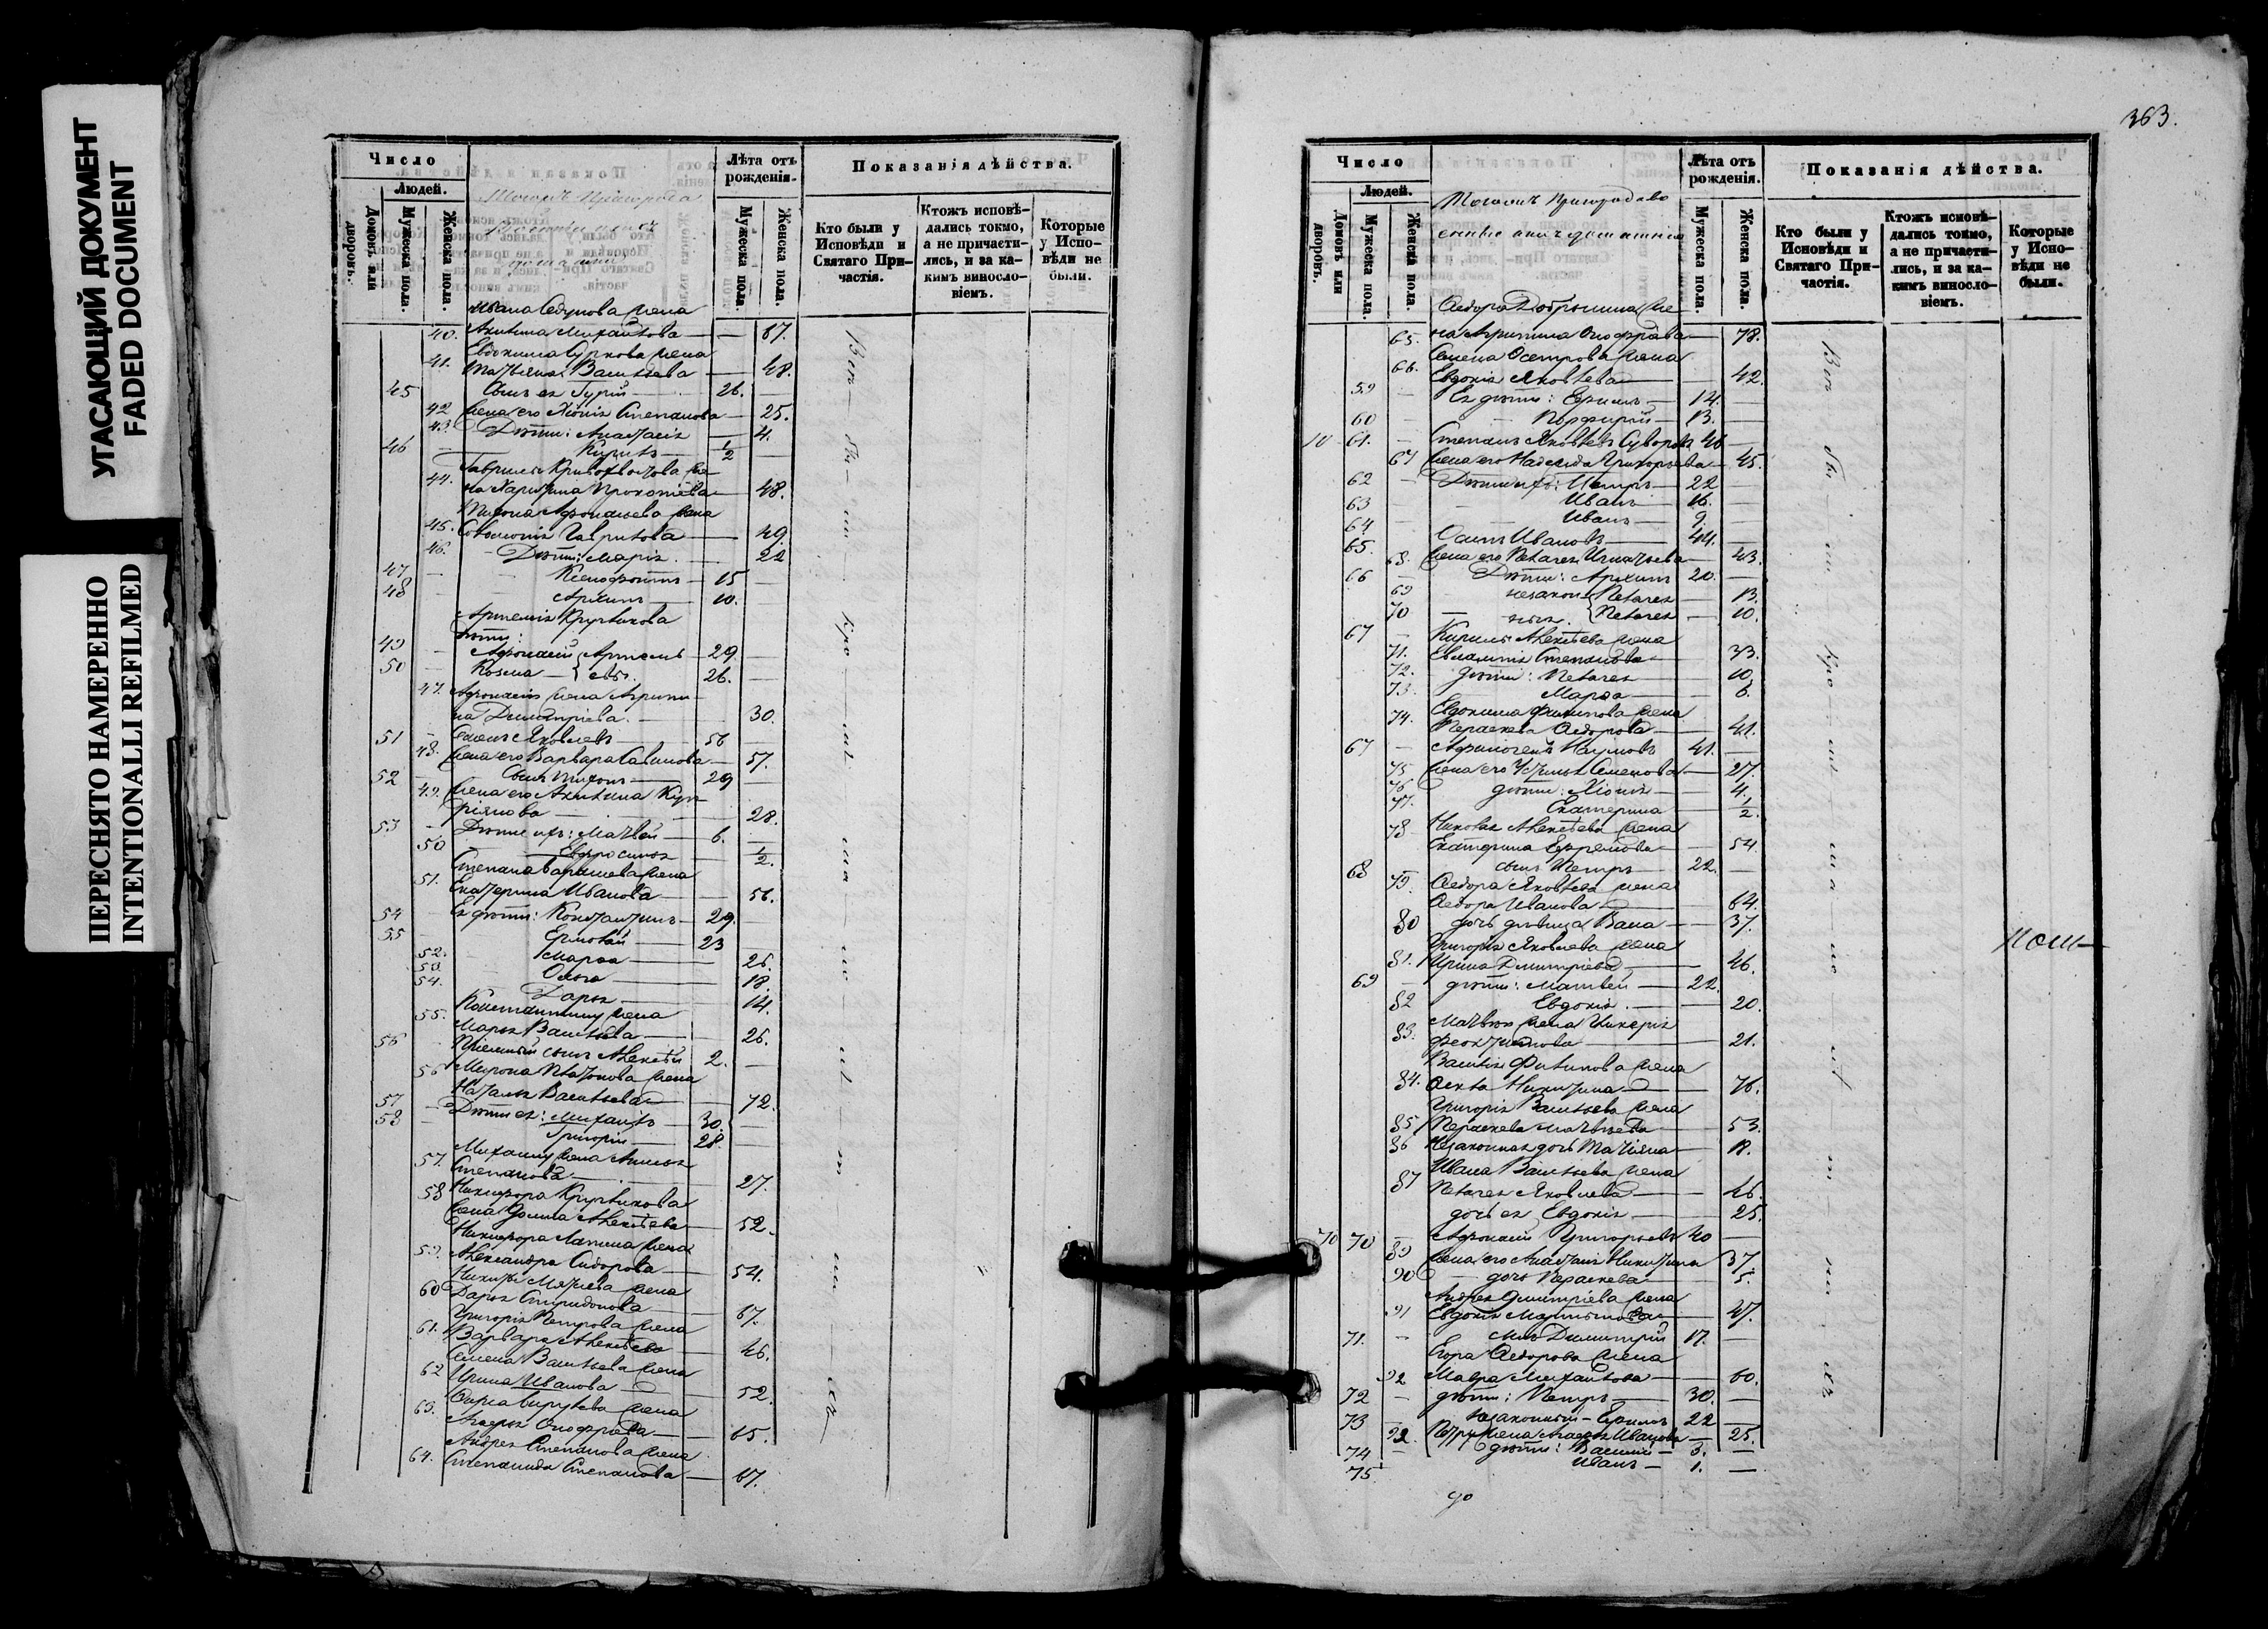 УГАСАЮЩИЙ ДОКУМЕНТ
FADED DOCUMENT
ПЕРЕСНЯТО НАМЕРЕННО
INTENTIONALLI REFILMED
Число
Людей.
Домовъ или дворовъ.
Мужеска пола.
Женска пола.
Лѣта отъ рожденія.
Мужеска пола.
Женска пола.
Показанія дѣйства.
Кто были у Исповѣди и Святаго Причастія.
Ктожъ исповѣдались токмо, а не причастились, и за какимъ винословіемъ.
Которые у Исповѣди не были.
Ивана жена
40. Акилина Михайлова — 67.
Евдокима Суркова жена
41. Татьяна Васильева — 48.
45 Сынъ ея Гурій — 26.
42 Жена его Хіонія Степанова — 25.
43 Дѣти: Анастасія — 4.
46 Кирилъ — 1/2
44. на Харитина Прокопіева — 48.
жена
45. Соломонія Гаврилова — 49.
46. Дѣти: Марія — 22
47 Ксенофонтъ — 15
48 Архипъ — 10.
Артемія Кругликова
дѣти:
49 Афонасій Артемь — 29.
50 Козма — евы. 26.
47. Афонасія жена Агрипи
на Димитріева — 30.
51 Яковлевъ — 56
48. Жена его Варвара Савинова — 57.
52 Сынъ Тихонъ — 29
49. Жена его Акилина Куп
ріянова — 28.
53 Дѣти ихъ: Матвей — 6.
50 Евфросинья — 1/2.
Степана Барышева жена
51. Екатерина Иванова — 56.
54 Ея дѣти: Константинъ — 29.
55 Ермолай — 23
52. Марѳа — 26.
53 Ольга — 18.
54. Дарья — 14.
Константину жена
55. Марья Васильева — 26.
56 Пріемный сынъ Алексѣй 2.
56 Мирона Платонова жена
Наталья Васильева — 72.
57 Дѣти ея: Михаилъ — 30.
58 Григорій — 28.
Михаилу жена Анисья
57. Степанова — 27.
58 Никифора Кругликова
жена Домна Алексѣева — 52.
Никифора Лапшина жена
59. Александра Сидорова — 54.
Никиты жена
60 Дарья Спиридонова — 67.
Григорія Петрова жена
61. Варвара Алексѣева — 46.
Семена Васильева жена
62 Ирина Иванова — 52.
жена
63. Агафья Онофріева — 65.
Андрея Степанова жена
64. Степанида Степанова — 67.
363.
Число
Людей.
Домовъ или дворовъ.
Мужеска пола.
Женска пола.
Лѣта отъ рожденія.
Мужеска пола.
Женска пола.
Показанія дѣйства.
Кто были у Исповѣди и Святаго Причастія.
Ктожъ исповѣдались токмо, а не причастились, и за какимъ винословіемъ.
Которые у Исповѣди не были.
Ѳедора Добрынина же
65. на Агрипина Онофріева — 78.
Семена Осетрова жена
66. Евдокія Яковлева — 42.
59 Ея дѣти: Ефимъ — 14.
60 Порфирій — 13.
10 61. Степанъ Яковлевъ Суворовъ 46
67 Жена его Надежда Григорьева — 45.
62 Дѣти ихъ: Петръ — 22
63 Иванъ — 16.
64 Иванъ — 9.
65. Осипъ Ивановъ — 44.
68. Жена его Пелагея Игнатьева — 43.
66 Дѣти: Архипъ 20.
69 незакон Пелагея — 13.
70 ныя. Пелагея — 10.
67 Кирилы Алексѣева жена
71. Евлампія Степанова — 33.
72. дѣти: Пелагея — 10.
73. Марѳа — 6.
Евдокима Филипова жена
74. Параскева Ѳедорова — 41.
67 Афиногенъ Наумовъ 41.
75 Жена его Устинья Семенова — 27.
76 дѣти: Хіонія — 4.
77. Екатерина — 1/2.
Николая Алексѣева жена
78 Екатерина Ефремова — 54.
68 сынъ Петръ 22.
79. Ѳедора Яковлева жена
Ѳедора Иванова — 64.
80 дочь дѣвица Васса — 37.
Григорія Яковлева жена
81. Ирина Димитріева — 46.
69 дѣти: Матвей — 22.
82 Евдокія — 20.
Матвею жена Гликерія
83. Феоктистова — 21.
Василія Филипова жена
84. Ѳекла Никитина — 76.
Григорія Васильева жена
85 Параскева Матвеева — 53.
86 Незаконная дочь Татіана — 18.
Ивана Васильева жена
87 Пелагея Яковлева — 46.
дочь ея Евдокія — 25.
70 70 Афонасій Григорьевъ 40
89 Жена его Анастасія Никитина 37.
90 дочь Параскева — 5.
Андрея Димитріева жена
91 Евдокія Мартынова — 47.
71. сынъ Димитрій 17.
Егора Ѳедорова жена
92 Мавра Михайлова — 60.
72 дѣти: Петръ — 30.
73 незаконный — Ефимъ 22
92 Петру жена Агафья Иванова — 25.
74 дѣти: Василій — 3.
75 Иванъ — 1.